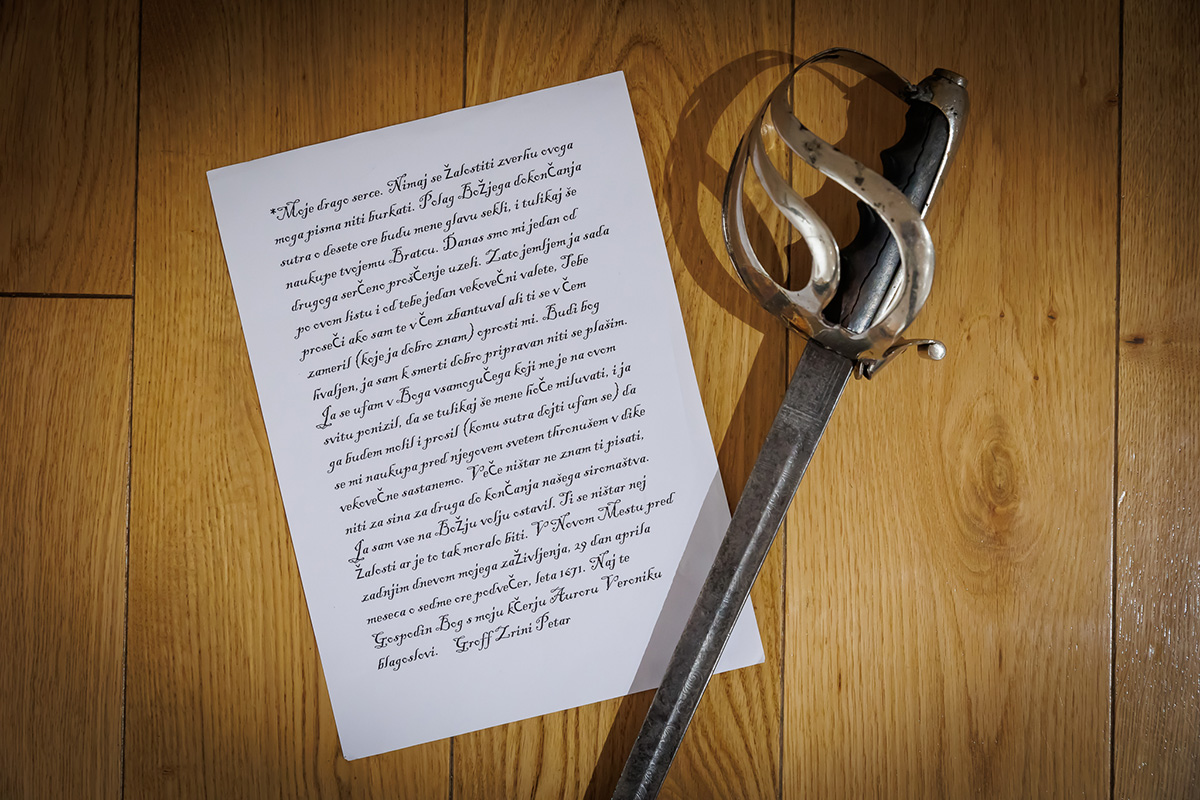 *Moje drago serce. Nimaj se žalostiti zverhu ovoga
moga pisma niti burkati. Polag Božjega dokončanja
sutra o desete ore budu mene glavu sekli, i tulikaj še
naukupe tvojemu Bratcu. Danas smo mi jedan od
drugoga serčeno proščenje uzeli. Zato jemljem ja sada
po ovom listu i od tebe jedan vekovečni valete, Tebe
proseči ako sam te v čem zbantuval ali ti se v čem
zameril (koje ja dobro znam) oprosti mi. Budi bog
hvaljen, ja sam k smerti dobro pripravan niti se plašim.
Ja se ufam v Boga vsamogučega koji me je na ovom
svitu ponizil, da se tulikaj še mene hoče miluvati, i ja
ga budem molil i prosil (komu sutra dojti ufam se) da
se mi naukupa pred njegovem svetem thronušem v dike
vekovečne sastanemo. Veče ništar ne znam ti pisati,
niti za sina za druga do končanja našega siromaštva.
Ja sam vse na Božju volju ostavil. Ti se ništar nej
žalosti ar je to tak moralo biti. V Novom Mestu pred
zadnjim dnevom mojega zaživljenja, 29 dan aprila
meseca o sedme ore podvečer, leta 1671. Naj te
Gospodin Bog s moju kčerju Auroru Veroniku
blagoslovi. Groff Zrini Petar